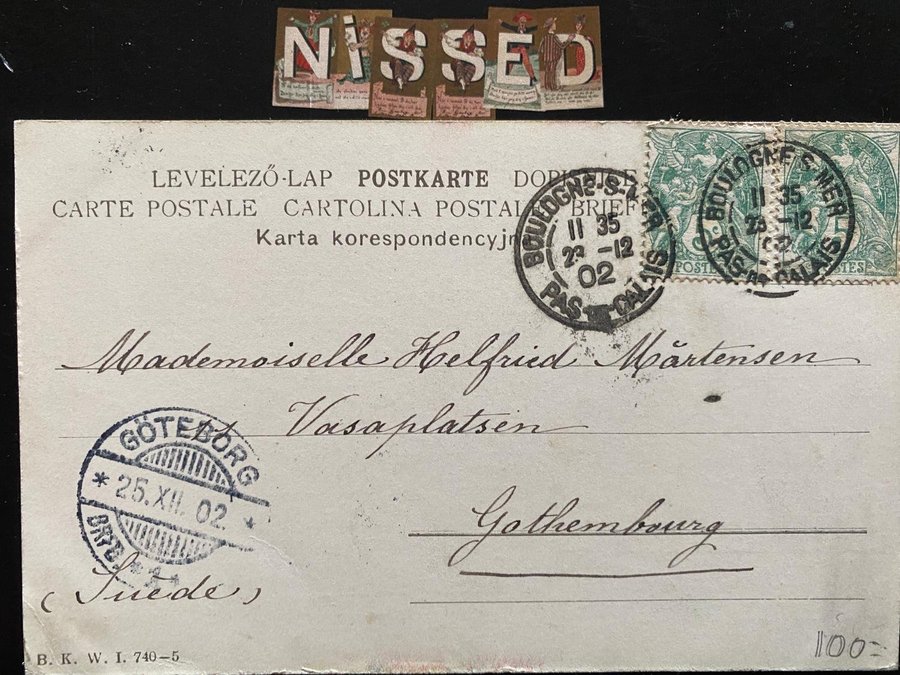 NiSSED
LEVELEZŐ-LAP POSTKARTE
CARTE POSTALE CARTOLINA POSTALE
Karta korespondencyjna
BOULOGNE-S-MER
11 35
23 -12
02
PAS CALAIS
BOULOGNE-S-MER
11 35
23 -12
02
PAS CALAIS
POSTES
Mademoiselle Helfried Mårtensen
Vasaplatsen
Gothembourg
(Suède)
GÖTEBORG
* 25.XII.02. *
B. K. W. I. 740-5
100=